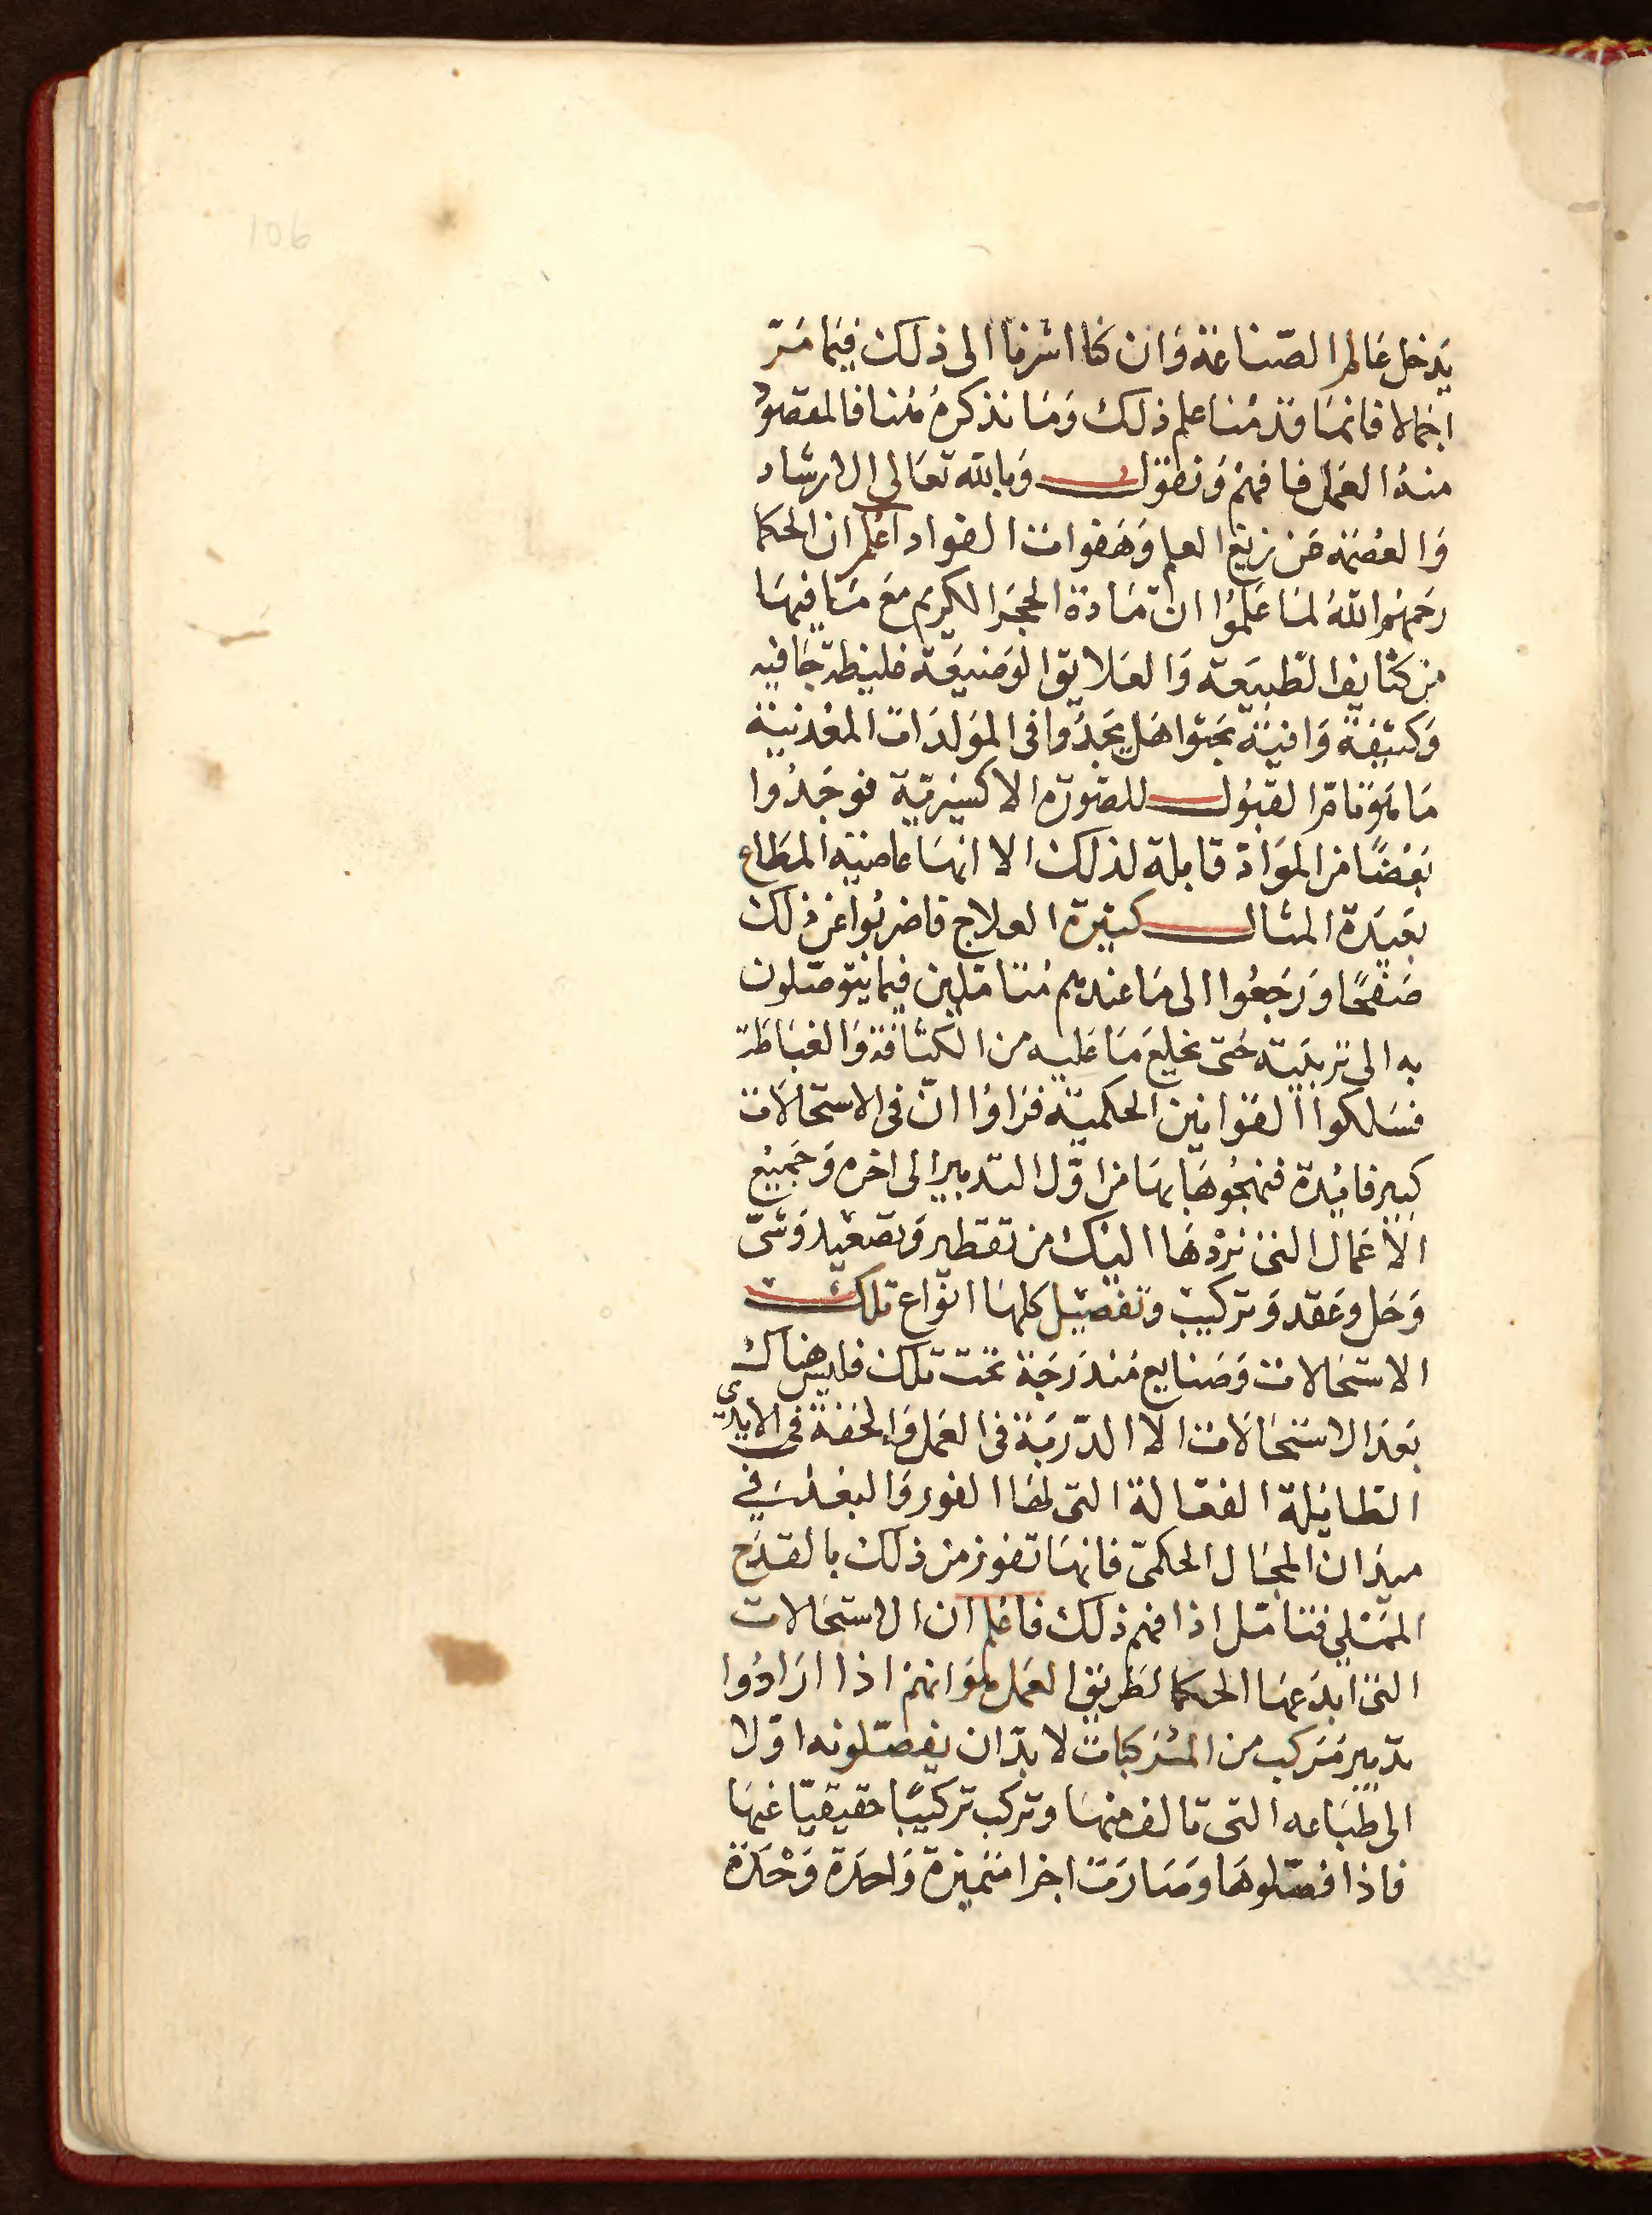 106
يدخل عالم الصناعة وان كنا اشرنا الى ذلك فيما مرّ
اجمالا فانما قدمنا علم ذلك وما نذكره هنا فالمقصود
منه العمل فافهم ونقول وبالله تعالى الارشاد
والعصمة من زيغ العلم وهفوات الفواد اعلم ان الحكما
رحمهم الله لما علموا ان مادة الحجر الكريم مع ما فيها
من كثايف الطبيعة والعلايق الوضيعة غليظة جافيه
وكثيفة وافية بحثوا هل يجدوا فى المولدات المعدنية
ما هو تام القبول للصورة الاكسيرية فوجدوا
بعضا من المواد قابلة لذلك الا انها عاصية المطاع
بعيدة المثال كثيرة العلاج فاضربوا عن ذلك
صفحًا ورجعوا الى ما عندهم متاملين فيما يتوصلون
به الى تربيته حتى يخلع ما عليه من الكثافة والغباظة
فسلكوا القوانين الحكمية فراوا ان فى الاستحالات
كبير فائدة فنهجوها بها من اوّل التدبير الى اخره وجميع
الاعمال التى نردها اليك من تقطير وتصعيد وشىّ
وحل وعقد وتركيب وتفصيل كلها انواع تلك
الاستحالات وصنايع مندرجة تحت تلك فليس هناك
بعد الاستحالات الا الدربة فى العمل والخفة فى الايدي
الطايلة الفعالة التى لها الفور والبعد فى
ميدان المجال الحكمىّ فانها تفوز من ذلك بالقدح
الممتلي فتامّل اذا فهم ذلك فاعلم ان الاستحالات
التى ابدعها الحكما لطريق العمل هو انهم اذا ارادوا
تدبير مركب من المركبات لا بدّ ان يفصّلونه اوّلا
الى طباعه التى تالف منها وتركب تركيبًا حقيقيّا عنها
فاذا فصّلوها وصارت اجزا متميزة واحدة وحدة